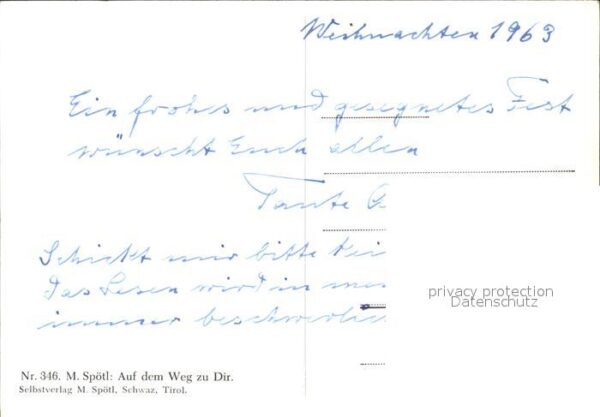 Weihnachten 1963
Ein frohes und gesegnetes Fest
wünscht Euch allen
Tante
Schickt mir bitte
Das Lesen wird in
immer
privacy protection
Datenschutz
Nr. 346. M. Spötl: Auf dem Weg zu Dir.
Selbstverlag M. Spötl, Schwaz, Tirol.